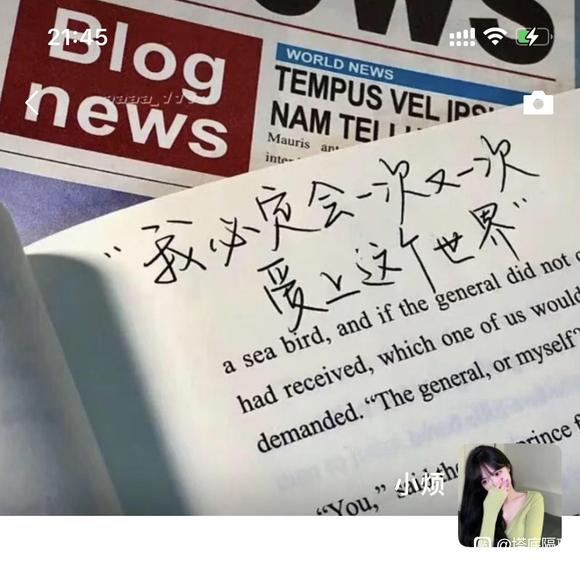 21:45
NEWS
Blog
news
WORLD NEWS
TEMPUS VEL IPS
NAM TELLU
Mauris
aaaa_11
"我必定会一次又一次
爱上这个世界"
a sea bird, and if the general did not
had received, which one of us would
demanded. "The general, or myself
"You," said the prince
小烦
@塔底隔